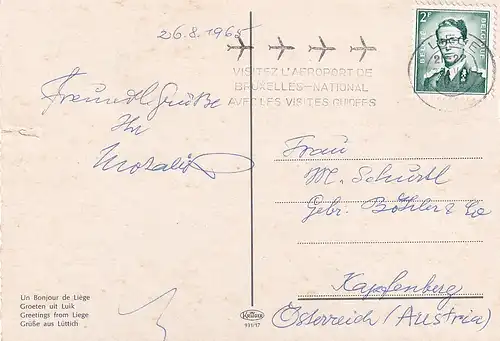 26.8.1965
2F
BELGIE
BELGIQUE
VISITEZ L'AEROPORT DE
BRUXELLES-NATIONAL
AVEC LES VISITES GUIDEES
Freundl. Grüße
Ihr
Frau
M. Schürtl
Gebr. Böhler & Co
Kapfenberg
Österreich (Austria)
Un Bonjour de Liège
Groeten uit Luik
Greetings from Liege
Grüße aus Lüttich
931/17